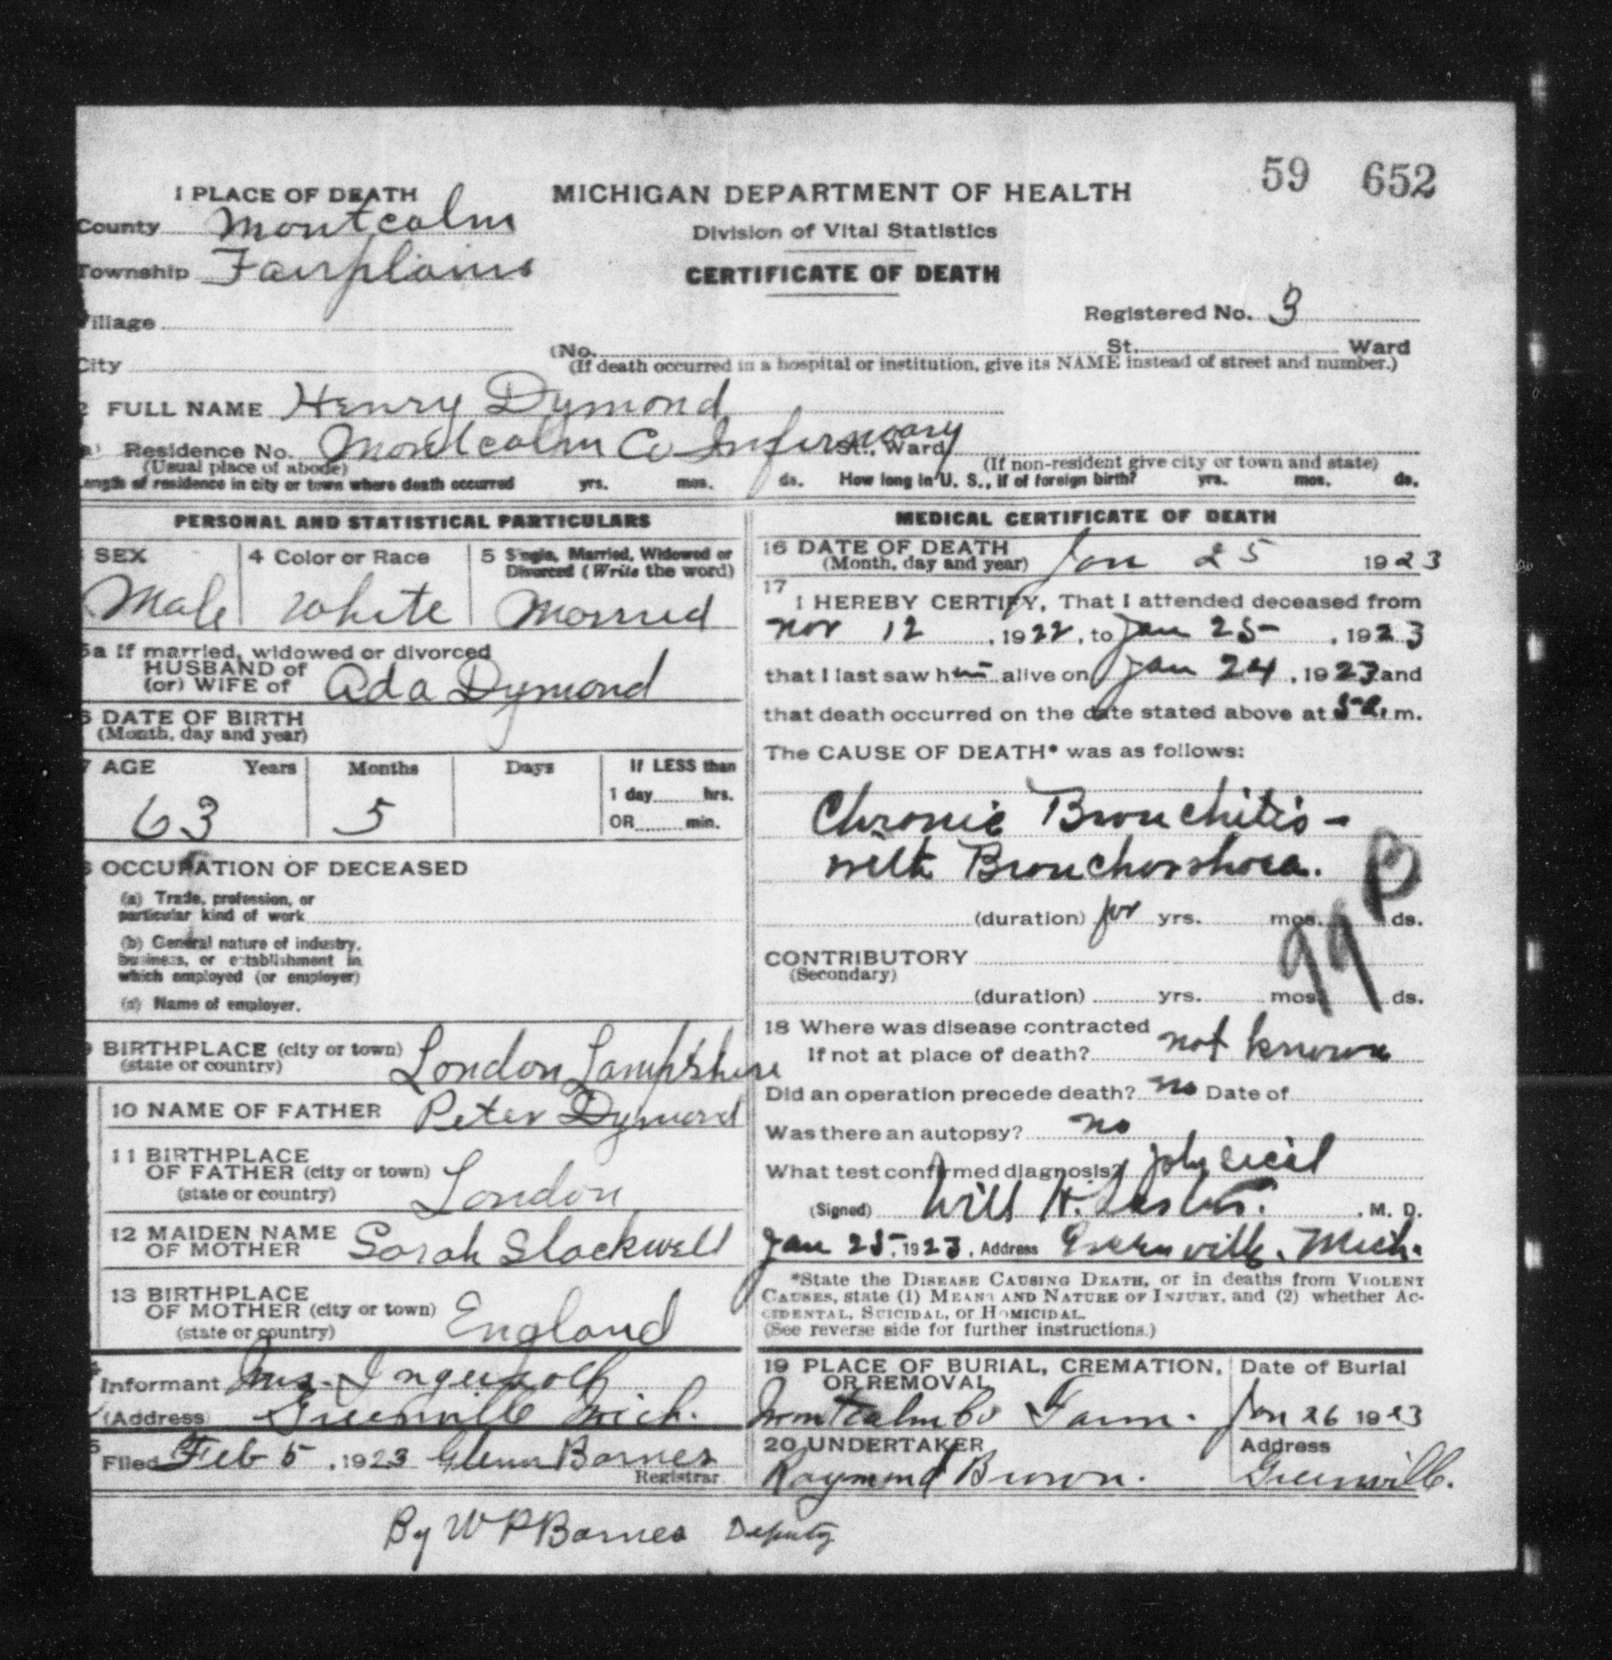 59 652
1 PLACE OF DEATH
MICHIGAN DEPARTMENT OF HEALTH
County Montcalm
Division of Vital Statistics
Township Fairplains
CERTIFICATE OF DEATH
Village
Registered No. 3
City
(No. St. Ward
(If death occurred in a hospital or institution, give its NAME instead of street and number.)
2 FULL NAME Henry Dymond
(a) Residence No. Montcalm Co Infirmary St., Ward
(Usual place of abode)
(If non-resident give city or town and state)
Length of residence in city or town where death occurred yrs. mos. ds. How long in U. S., if of foreign birth? yrs. mos. ds.
PERSONAL AND STATISTICAL PARTICULARS
SEX
Male
4 Color or Race
White
5 Single, Married, Widowed or
Divorced (Write the word)
Married
5a If married, widowed or divorced
HUSBAND of
(or) WIFE of Ada Dymond
6 DATE OF BIRTH
(Month, day and year)
7 AGE Years Months Days If LESS than
1 day hrs.
63 5
OR min.
8 OCCUPATION OF DECEASED
(a) Trade, profession, or
particular kind of work
(b) General nature of industry,
business, or establishment in
which employed (or employer)
(c) Name of employer.
9 BIRTHPLACE (city or town)
(state or country) London
10 NAME OF FATHER Peter Dymond
11 BIRTHPLACE
OF FATHER (city or town)
(state or country) London
12 MAIDEN NAME
OF MOTHER Sarah Slackwell
13 BIRTHPLACE
OF MOTHER (city or town)
(state or country) England
Informant Mrs.
(Address) Greenville Mich.
Filed Feb 5, 1923 Glenn Barnes
Registrar
By W P Barnes Deputy
MEDICAL CERTIFICATE OF DEATH
16 DATE OF DEATH
(Month, day and year) Jan 25 1923
17
I HEREBY CERTIFY, That I attended deceased from
Nov 12, 1922, to Jan 25, 1923
that I last saw him alive on Jan 24, 1923 and
that death occurred on the date stated above at m.
The CAUSE OF DEATH* was as follows:
Chronic Bronchitis -
with Bronchorrhoea.
(duration) yrs. mos. ds.
99 B
CONTRIBUTORY
(Secondary)
(duration) yrs. mos. ds.
18 Where was disease contracted
If not at place of death? not known
Did an operation precede death? no Date of
Was there an autopsy? no
What test confirmed diagnosis? physical
(Signed) Will H. , M. D.
Jan 25, 1923, Address Greenville, Mich.
*State the DISEASE CAUSING DEATH, or in deaths from VIOLENT
CAUSES, state (1) MEANS AND NATURE OF INJURY, and (2) whether AC-
CIDENTAL, SUICIDAL, or HOMICIDAL.
(See reverse side for further instructions.)
19 PLACE OF BURIAL, CREMATION,
OR REMOVAL
Montcalm Co Farm.
Date of Burial
Jan 26 1923
20 UNDERTAKER
Raymond Brown.
Address
Greenville.